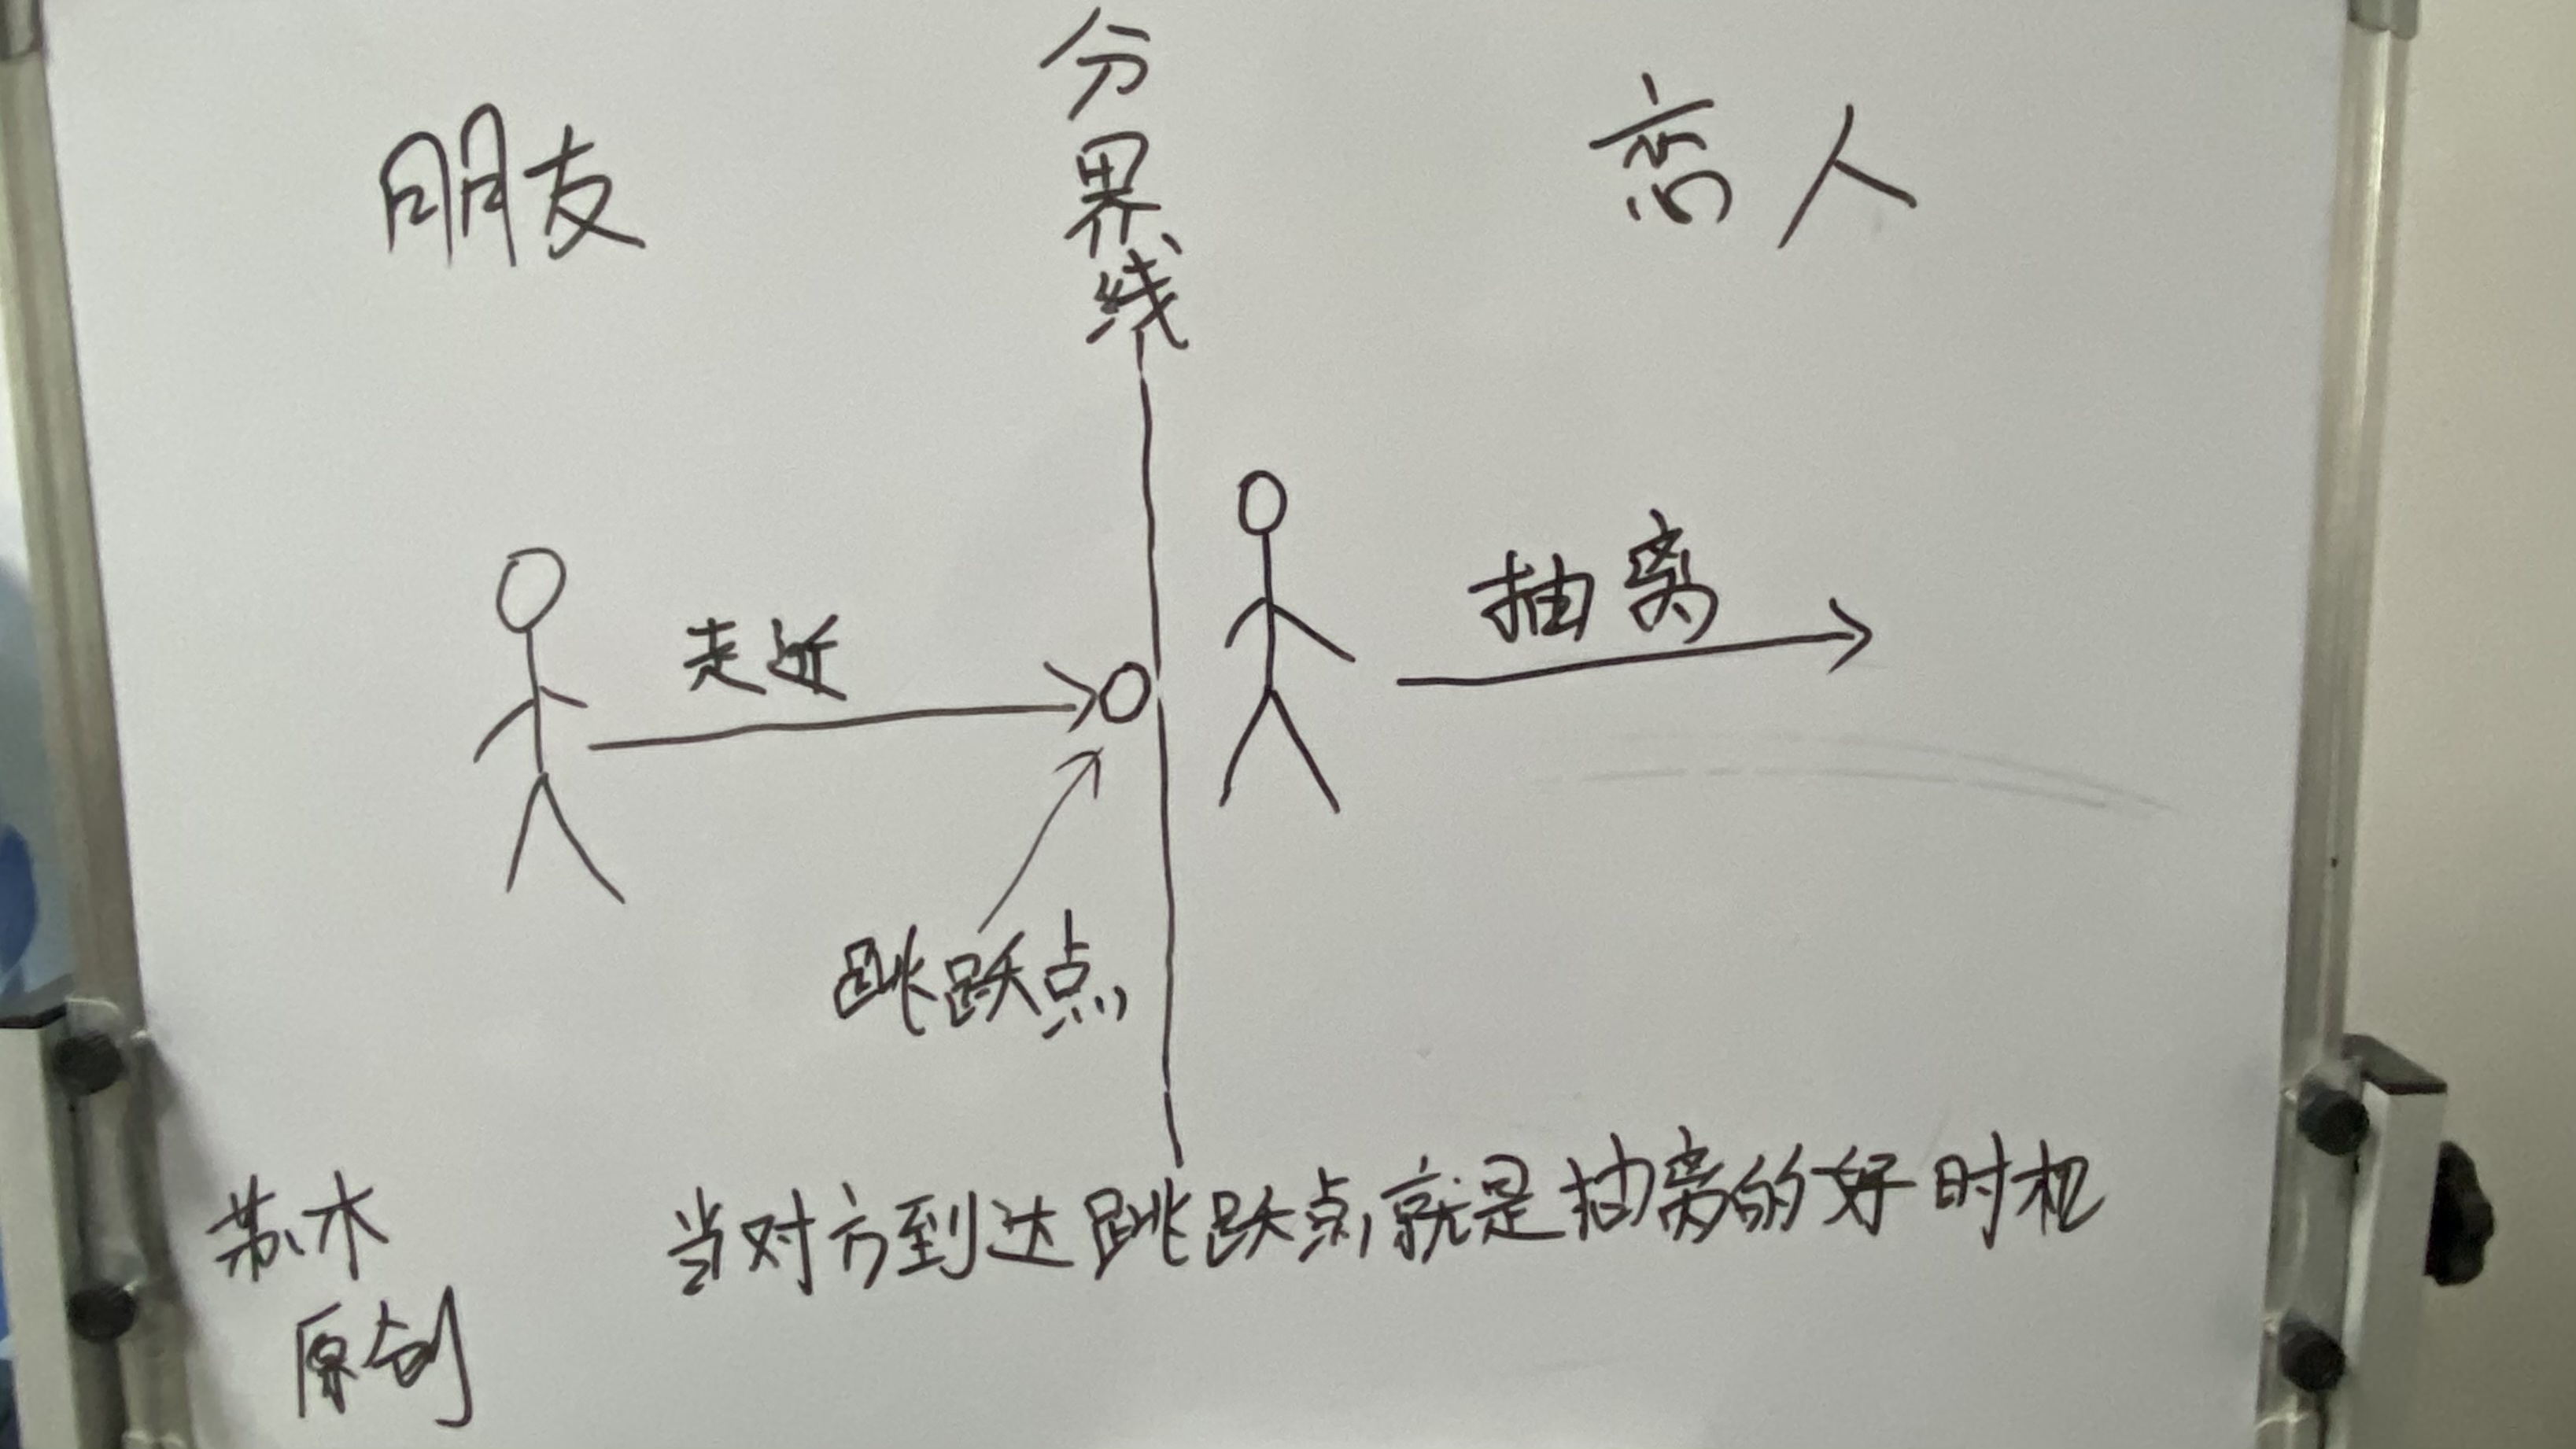 分界线
朋友
恋人
走近
抽离
跳跃点
当对方到达跳跃点就是抽离的好时机
苏木
原创